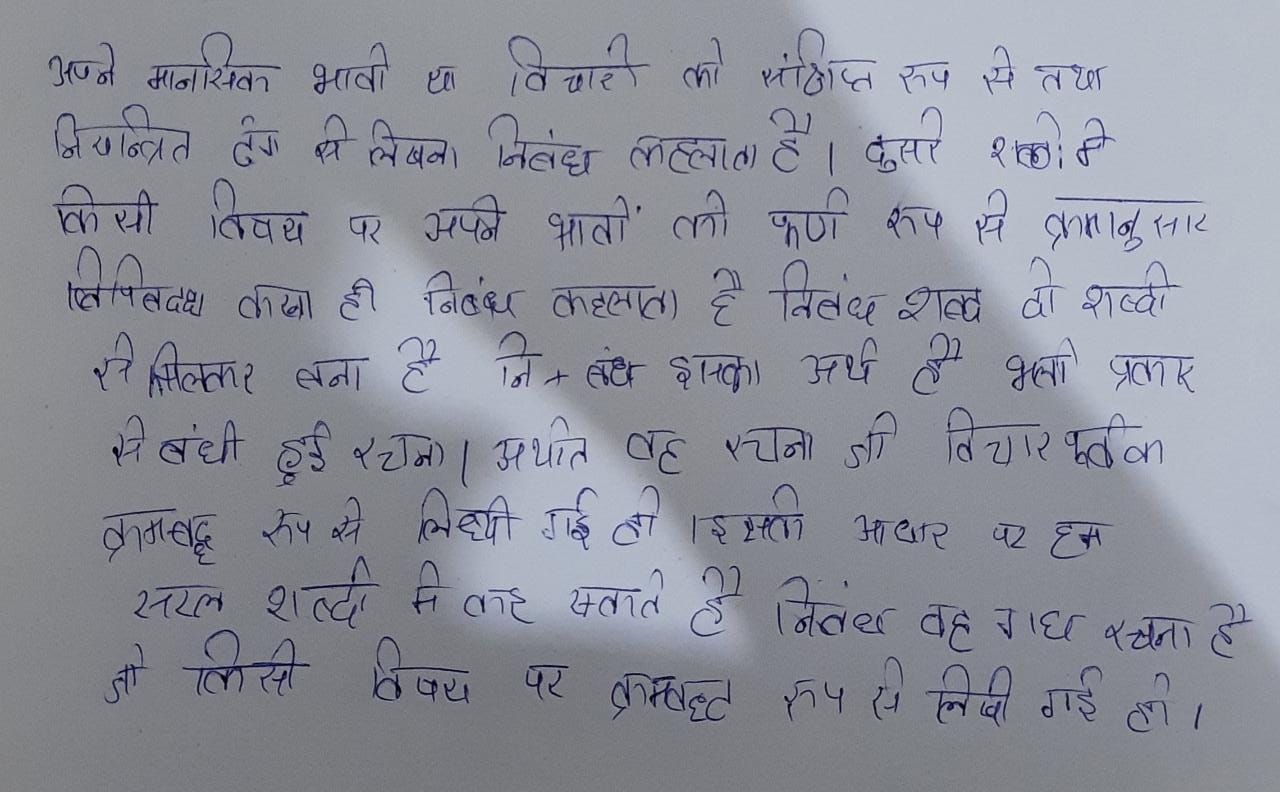 अपने मानसिक भावो या विचारो को संक्षिप्त रूप से तथा
नियन्त्रित ढंग से लिखना निबंध कहलाता है। दुसरे शब्दो मे
किसी विषय पर अपने भावों को पूर्ण रूप से क्रमानुसार
लिपिबदध करना ही निबंध कहलाता है निबंध शब्द दो शब्दो
से मिलकर बना है नि + बंध इसका अर्थ है भली प्रकार
से बंधी हुई रचना। अर्थात वह रचना जो विचार पूर्वक
क्रमबद्ध रूप से लिखी गई हो । इसकी आधार पर हम
सरल शब्दो मे कह सकते है निबंध वह गध रचना है
जो किसी विषय पर क्रमबद्ध रूप से लिखी गई हो ।